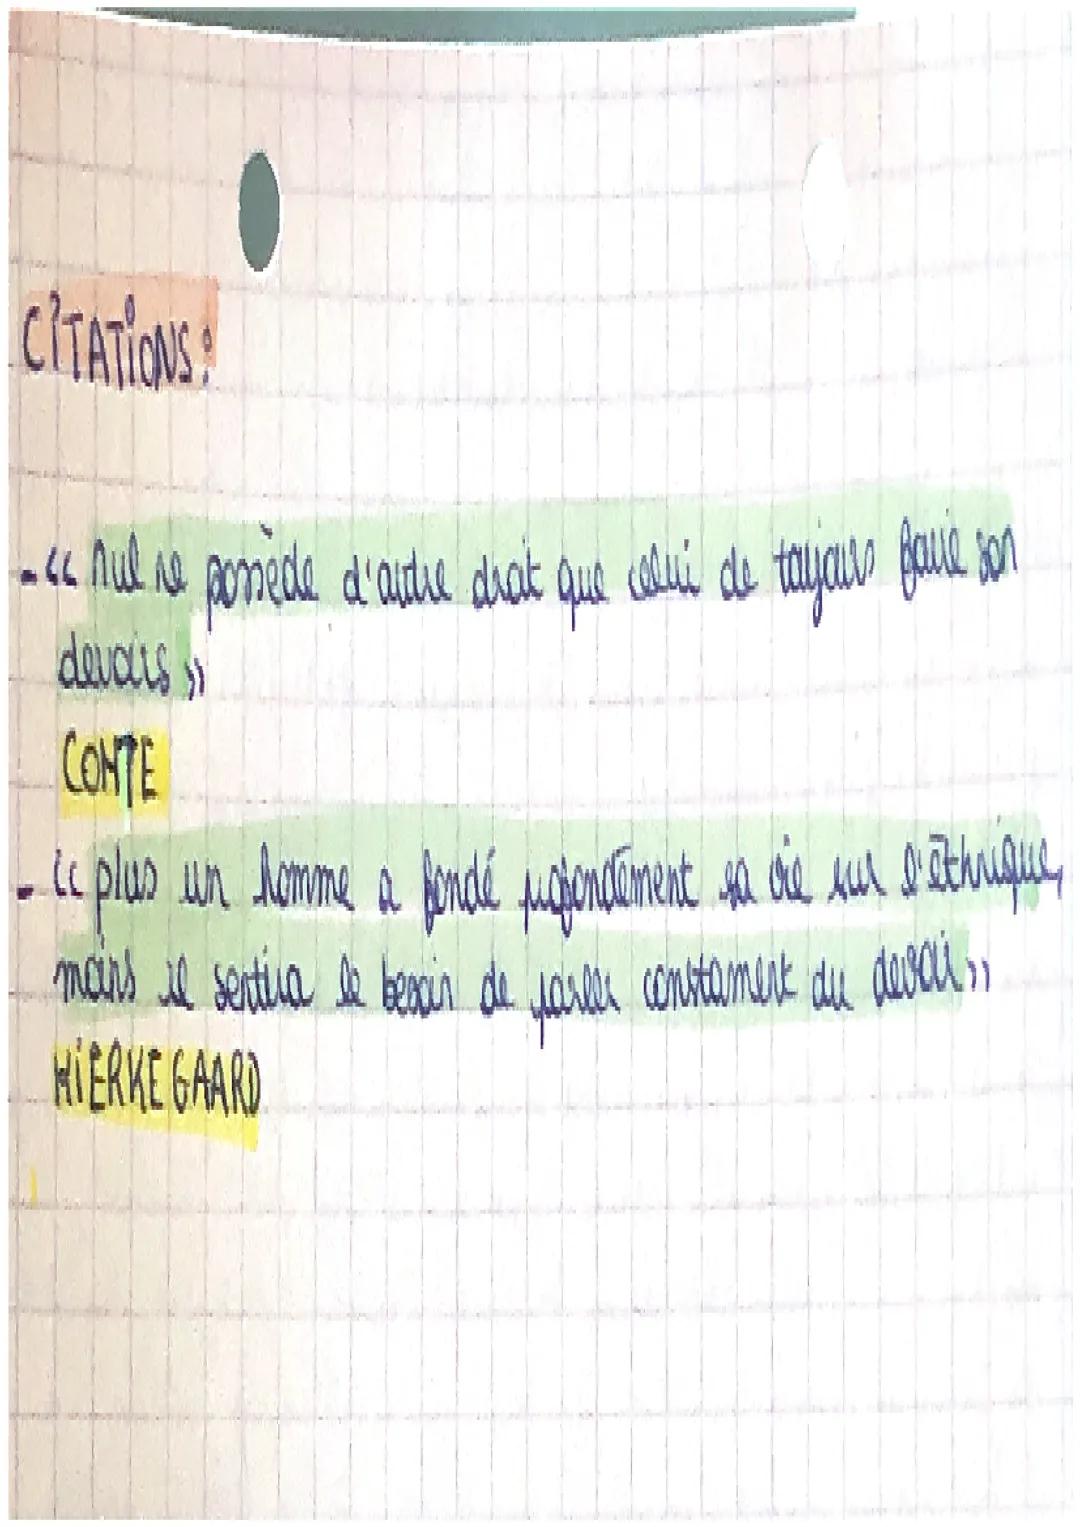 CITATIONS :
- « Nul ne possède d'autre droit que celui de toujours faire son
devoirs »
COMTE
- « plus un homme a fondé profondément sa vie sur l'éthnique,
moins il sentira le besoin de parler constament du devoir »
KIERKEGAARD